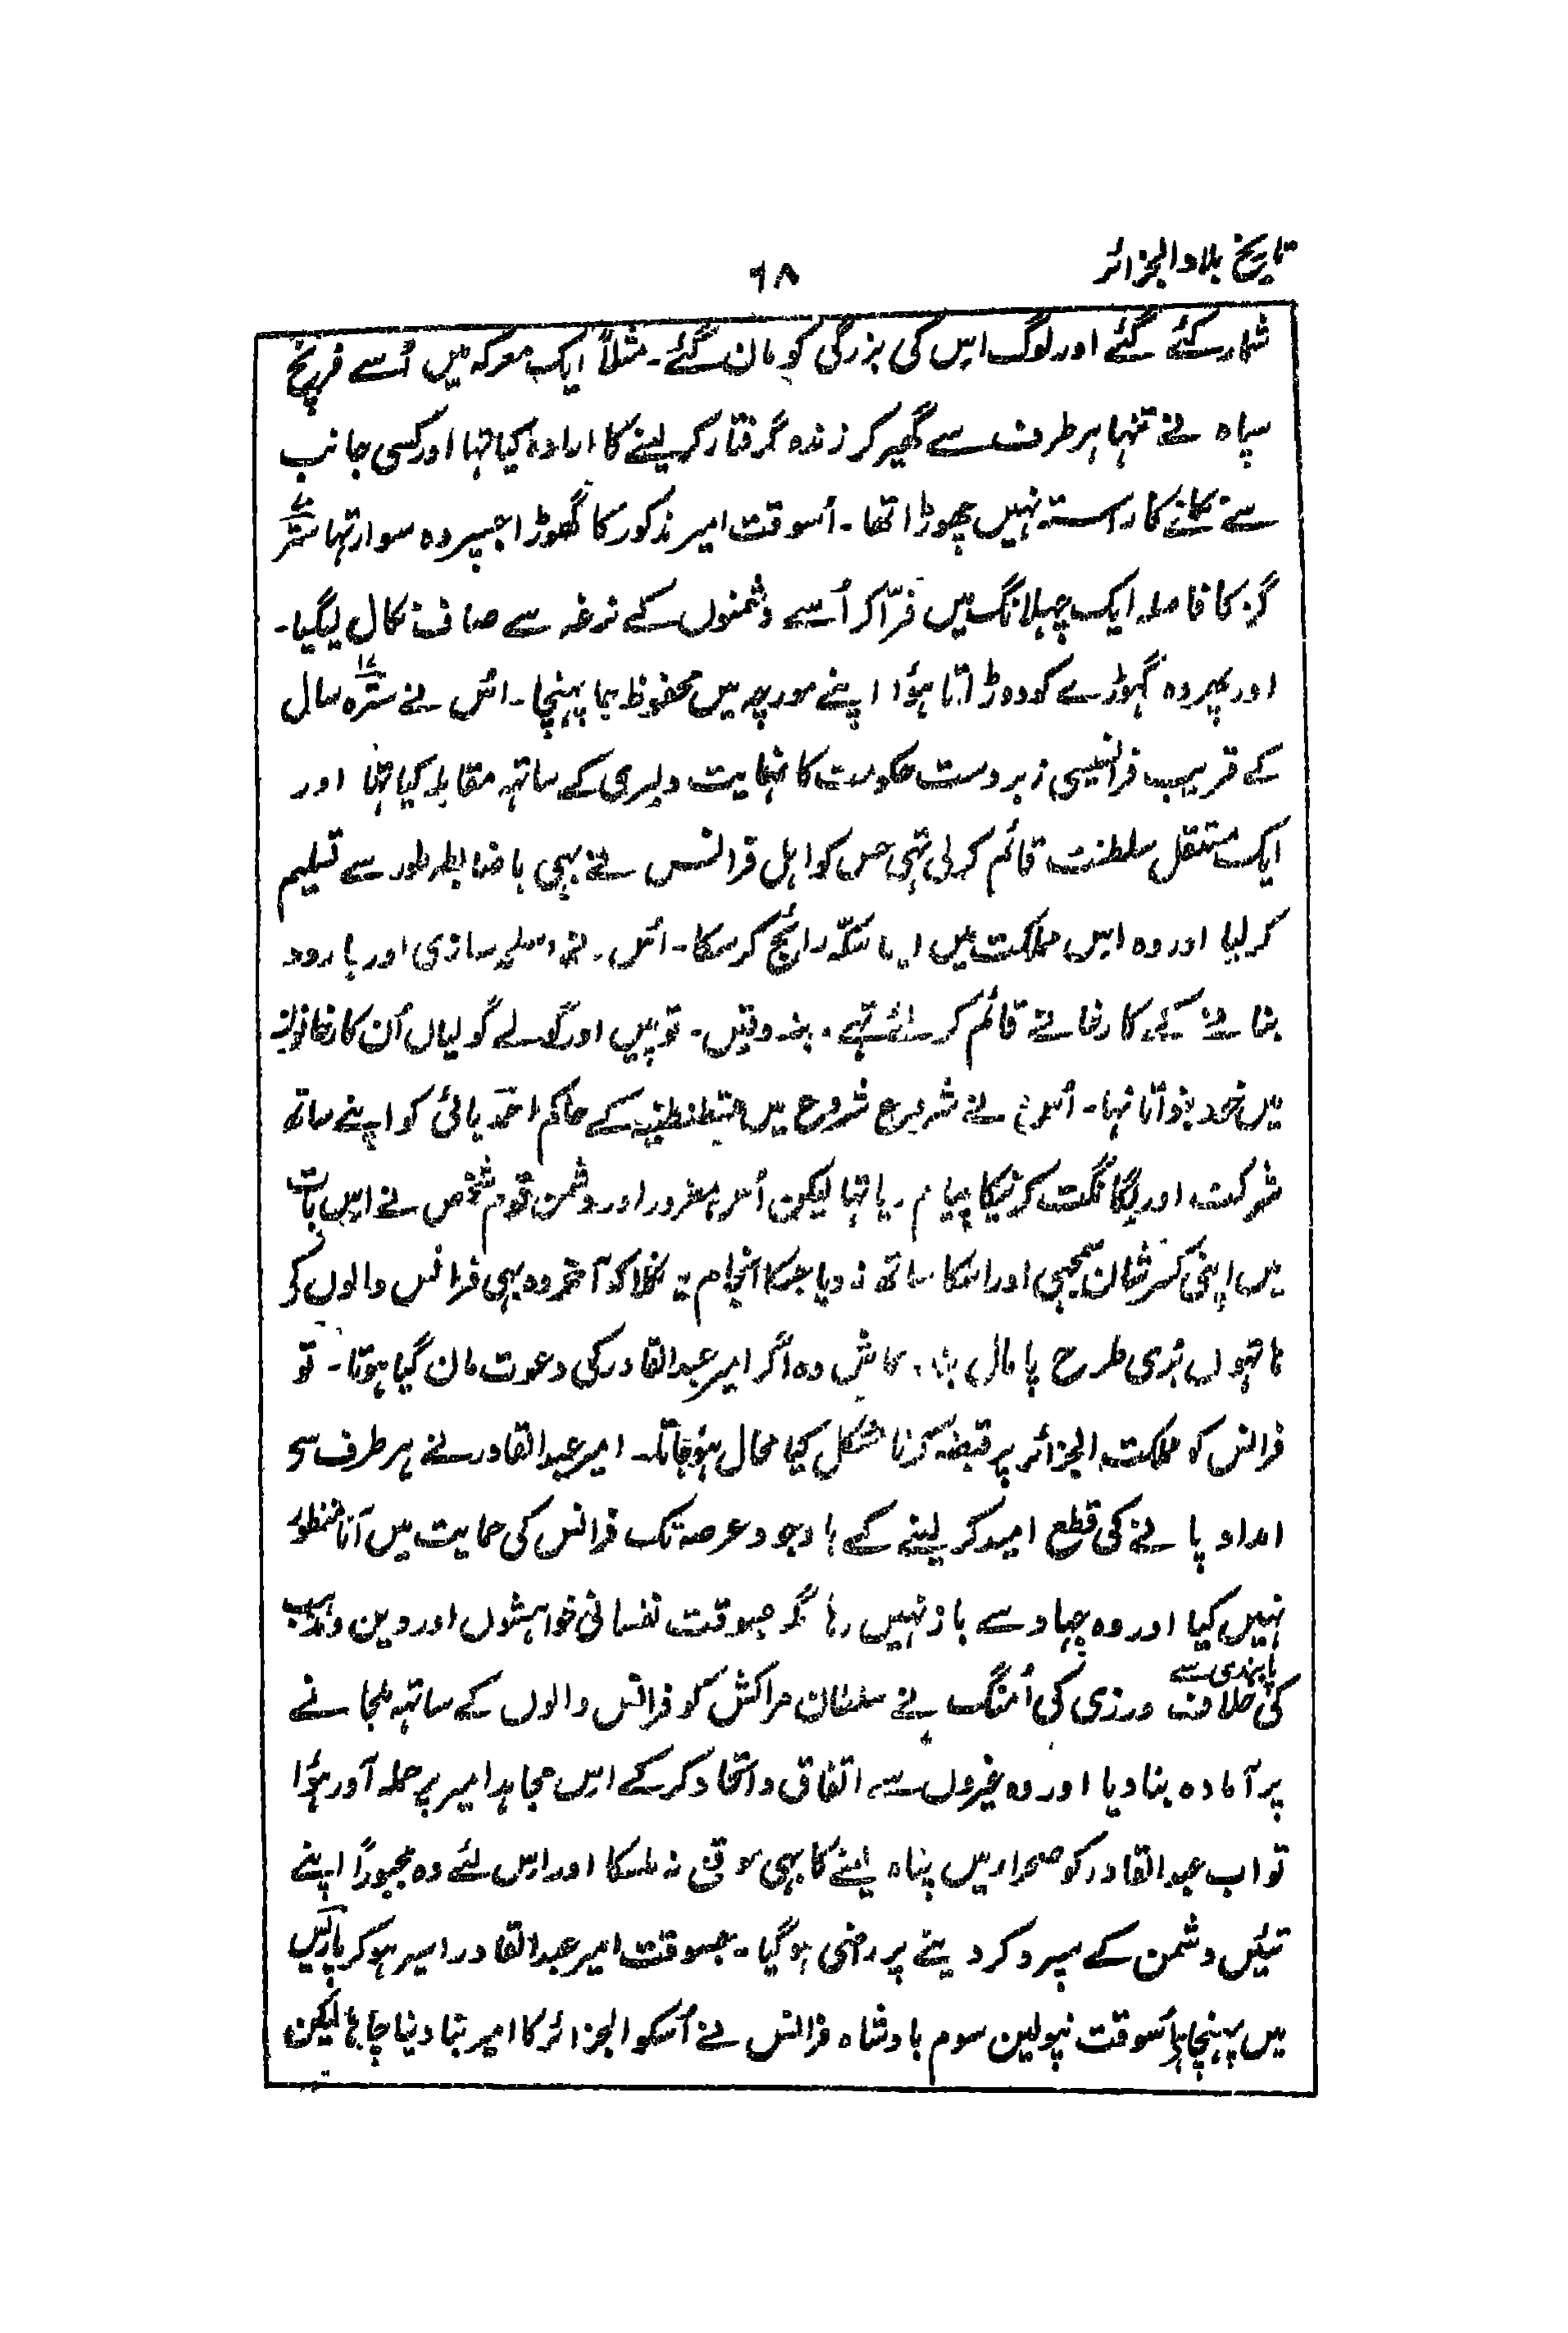 تاریخ بلاد الجزائر
۶۸
شمار کئے گئے اور لوگ اس کی بزرگی کو مان گئے۔ مثلاً ایک معرکہ میں اُسے فرنچ
سپاہ نے تنہا ہر طرف سے گھیر کر زندہ گرفتار کر لینے کا ارادہ کیا تہا اور کسی جانب
سے نکلنے کا راستہ نہیں چھوڑا تھا۔ اُسوقت امیر مذکور کا گھوڑا جسپر وہ سوار تہا ستر
گز کا فاصلہ ایک چہلانگ میں فرّا کر اُسے دشمنوں کے نرغہ سے صاف نکال لیگیا۔
اور پہر وہ گہوڑے کو دوڑاتا ہؤا اپنے مورچہ میں محفوظ جا پہنچا۔ اس نے سترہ ۱۷ سال
کے قریب فرانسیسی زبردست حکومت کا نہایت دلیری کے ساتہہ مقابلہ کیا تہا اور
ایک مستقل سلطنت قائم کر لی تہی جس کو اہل فرانس نے بہی باضابطہ طور سے تسلیم
کر لیا اور وہ اس مملکت میں اپنا سکّہ رائج کر سکا۔ اس نے اسلحہ سازی اور بارود
بنانے کے کارخانے قائم کر لئے تہے۔ بندوقیں۔ توپیں اور گولے گولیاں اُن کارخانوں
میں خود بنواتا تہا۔ اُس نے شروع شروع میں قسطنطنیہ کے حاکم احمد بائی کو اپنے ساتھ
شرکت اور یگانگت کرنیکا پیام دیا تہا لیکن اُس مغرور اور دشمن قوم شخص نے اس بات
میں اپنی کسر شان سمجہی اور اسکا ساتھ نہ دیا جسکا انجام یہ نکلا کہ آخر وہ بہی فرانس والوں کے
ہاتہوں بُری طرح پامال بنا۔ کاش وہ اگر امیر عبدالقادر کی دعوت مان گیا ہوتا۔ تو
فرانس کو مملکت الجزائر پر قبضہ کرنا مشکل کیا محال ہو جاتا۔ امیر عبدالقادر نے ہر طرف سے
امداد پانے کی قطع امید کر لینے کے باوجود عرصہ تک فرانس کی حمایت میں آنا منظور
نہیں کیا اور وہ جہاد سے باز نہیں رہا مگر جسوقت نفسانی خواہشوں اور دین و مذہب
کی پابندی سے خلاف ورزی کی اُمنگ نے سلطان مراکش کو فرانس والوں کے ساتہہ ملجانے
پر آمادہ بنا دیا اور وہ غیروں سے اتفاق و اتحاد کر کے اس مجاہد امیر پر حملہ آور ہؤا
تو اب عبدالقادر کو صحرا میں پناہ لینے کا بہی موقع نہ ملسکا اور اس لئے وہ مجبوراً اپنے
تئیں دشمن کے سپرد کر دینے پر راضی ہو گیا۔ جسوقت امیر عبدالقادر اسیر ہو کر پارلیس
میں پہنچا ہے اُسوقت نپولین سوم بادشاہ فرانس نے اُسکو الجزائر کا امیر بنا دینا چاہا لیکن